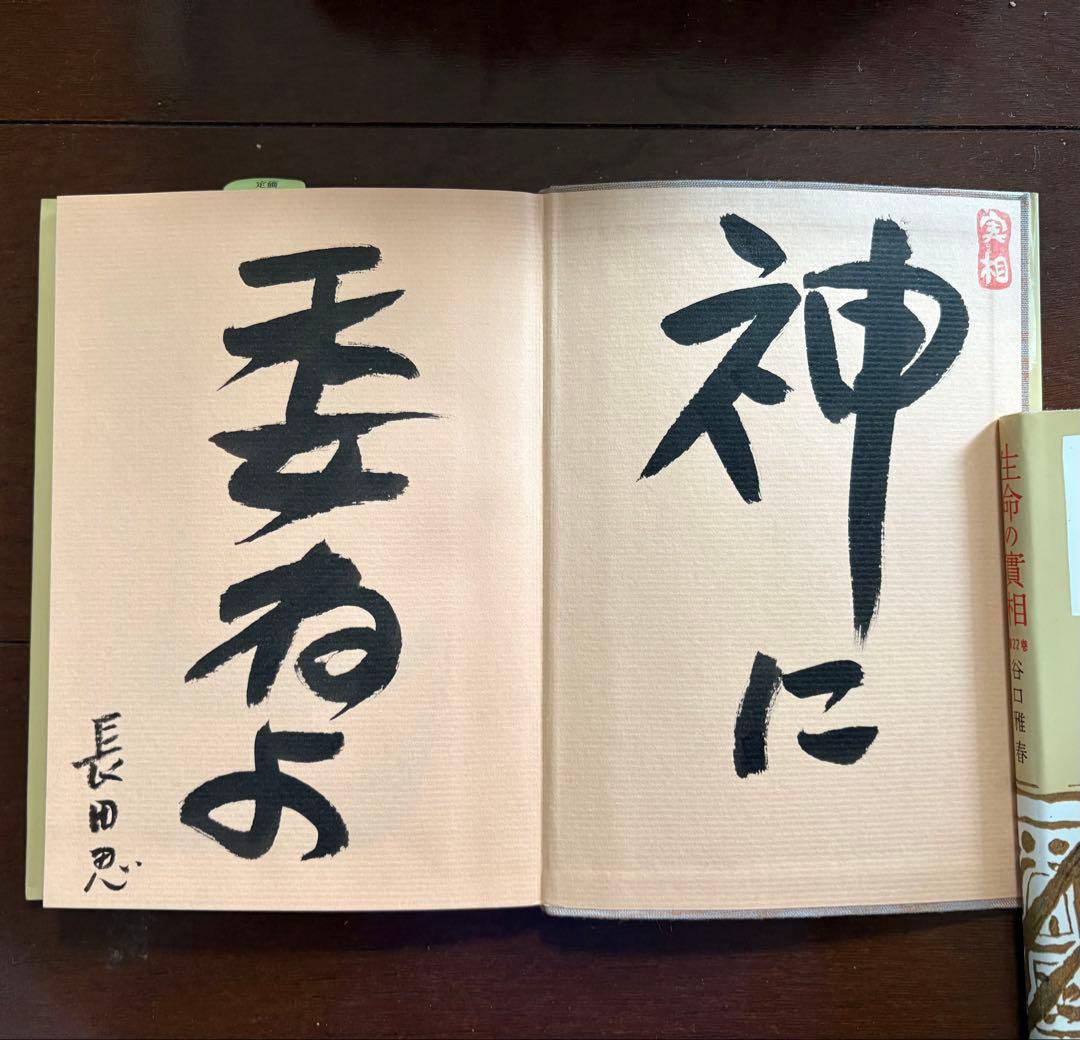 実相
神に
委ねよ
長田忍
定価
生命の實相
第22巻
谷口雅春